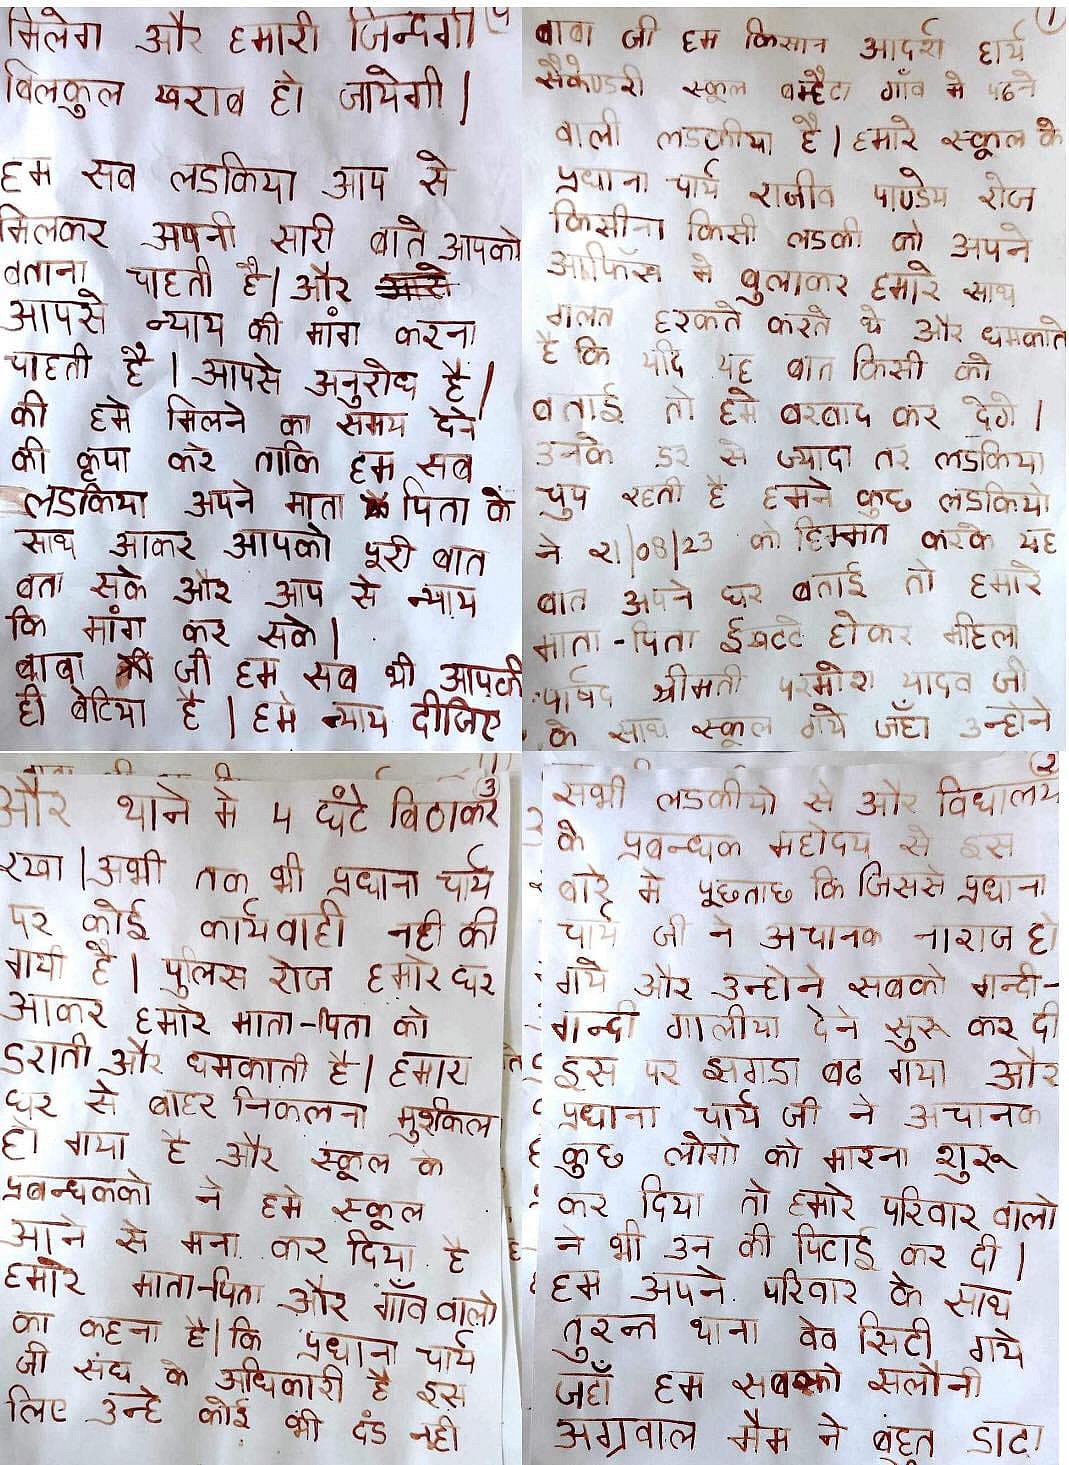 1
बाबा जी हम किसान आदर्श हार्य
सैकेण्डरी स्कूल बम्हैटा गाँव मे पढने
वाली लडकीया है। हमारे स्कूल के
प्रधाना चार्य राजीव पाण्डेय रोज
किसीना किसी लडकी को अपने
आफिस मे बुलाकर हमारे साथ
गलत हरकते करते थे और धमकाते
है कि यदि यह बात किसी को
बताई तो हमे बरबाद कर देगे।
उनके डर से ज्यादा तर लडकिया
चुप रहती है हमने कुछ लडकियो
ने 21/08/23 को हिम्मत करके यह
बात अपने घर बताई तो हमारे
माता-पिता ईखटटे होकर महिला
पार्षद श्रीमती परमोश यादव जी
के साथ स्कूल गये जहाँ उन्होने
2
सभी लडकीयो से और विधालय
के प्रबन्धक महोदय से इस
बारे मे पूछताछ कि जिससे प्रधाना
चार्य जी ने अचानक नाराज हो
गये और उन्होने सबको गन्दी-
गन्दी गालीया देने सुरू कर दी
इस पर झगडा बढ गया और
प्रधाना चार्य जी ने अचानक
कुछ लोगो को मारना शुरू
कर दिया तो हमारे परिवार वालो
ने भी उन की पिटाई कर दी।
हम अपने परिवार के साथ
तुरन्त थाना वेव सिटी गये
जहाँ हम सबको सलौनी
अग्रवाल मैम ने बहुत डाटा
3
और थाने मे 4 घंटे बिठाकर
रखा। अभी तक भी प्रधाना चार्य
पर कोई कार्यवाही नही की
गयी है। पुलिस रोज हमारे घर
आकर हमारे माता-पिता को
डराती और धमकाती है। हमारा
घर से बाहर निकलना मुशंकिल
हो गया है और स्कूल के
प्रबन्धकको ने हमे स्कूल
आने से मना कर दिया है
हमारे माता-पिता और गाँव वालो
का कहना है। कि प्रधाना चार्य
जी संघ के अधिकारी है इस
लिए उन्हे कोई भी दंड नही
4
मिलेगा और हमारी जिन्दगी
बिलकुल खराब हो जायेगी।
हम सब लडकिया आप से
मिलकर अपनी सारी बाते आपको
बताना चाहती है। और
आपसे न्याय की मांग करना
चाहती है। आपसे अनुरोध है।
की हमे मिलने का समय देने
की कृपा करे ताकि हम सब
लडकिया अपने माता पिता के
साथ आकर आपको पूरी बात
बता सके और आप से न्याय
कि मांग कर सके।
बाबा जी हम सब भी आपकी
ही बेटिया है। हमे न्याय दीजिए